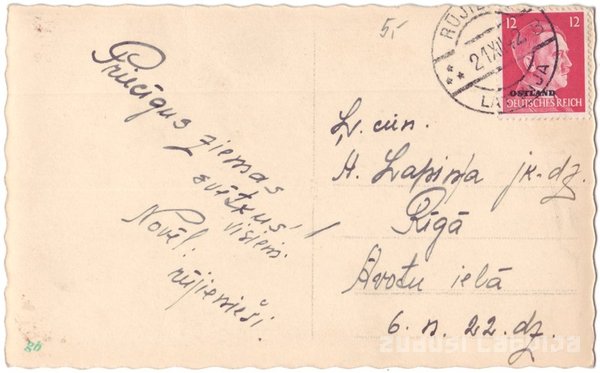 Priecīgus ziemas
svētkus!
visiem.
Novēl.
rūjieniešī.
5,-
RŪJIENA
21XII 42
LATVIJA
12 12
OSTLAND
DEUTSCHES REICH
Ļ. cien.
A. Lapiņa jk-dz.
Rīgā
Avotu ielā
6. n. 22. dz.
gb
zudusi Latvija